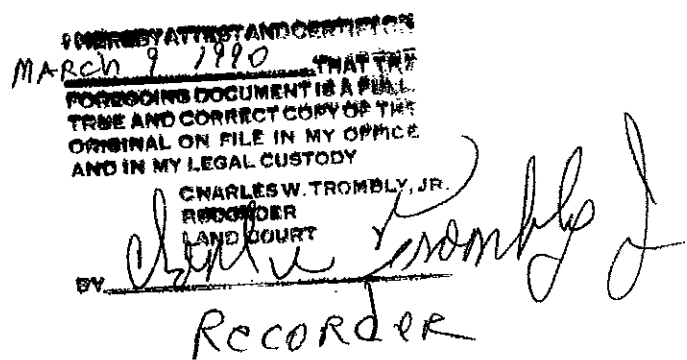 I HEREBY ATTEST AND CERTIFY ON
MARCH 9 1990 THAT THE
FOREGOING DOCUMENT IS A FULL
TRUE AND CORRECT COPY OF THE
ORIGINAL ON FILE IN MY OFFICE
AND IN MY LEGAL CUSTODY
CHARLES W. TROMBLY, JR.
RECORDER
LAND COURT
BY Charles W Trombly J
RecORdeR